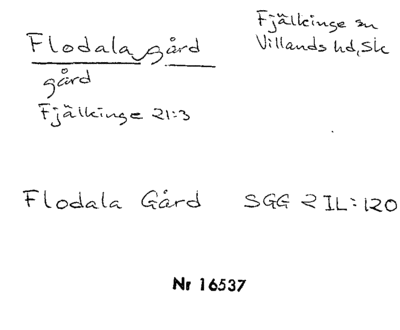 Flodala gård
Fjälkinge sn
Villands hd, Sk
gård
Fjälkinge 21:3
Flodala Gård SGG 2 IL:120
Nr 16537